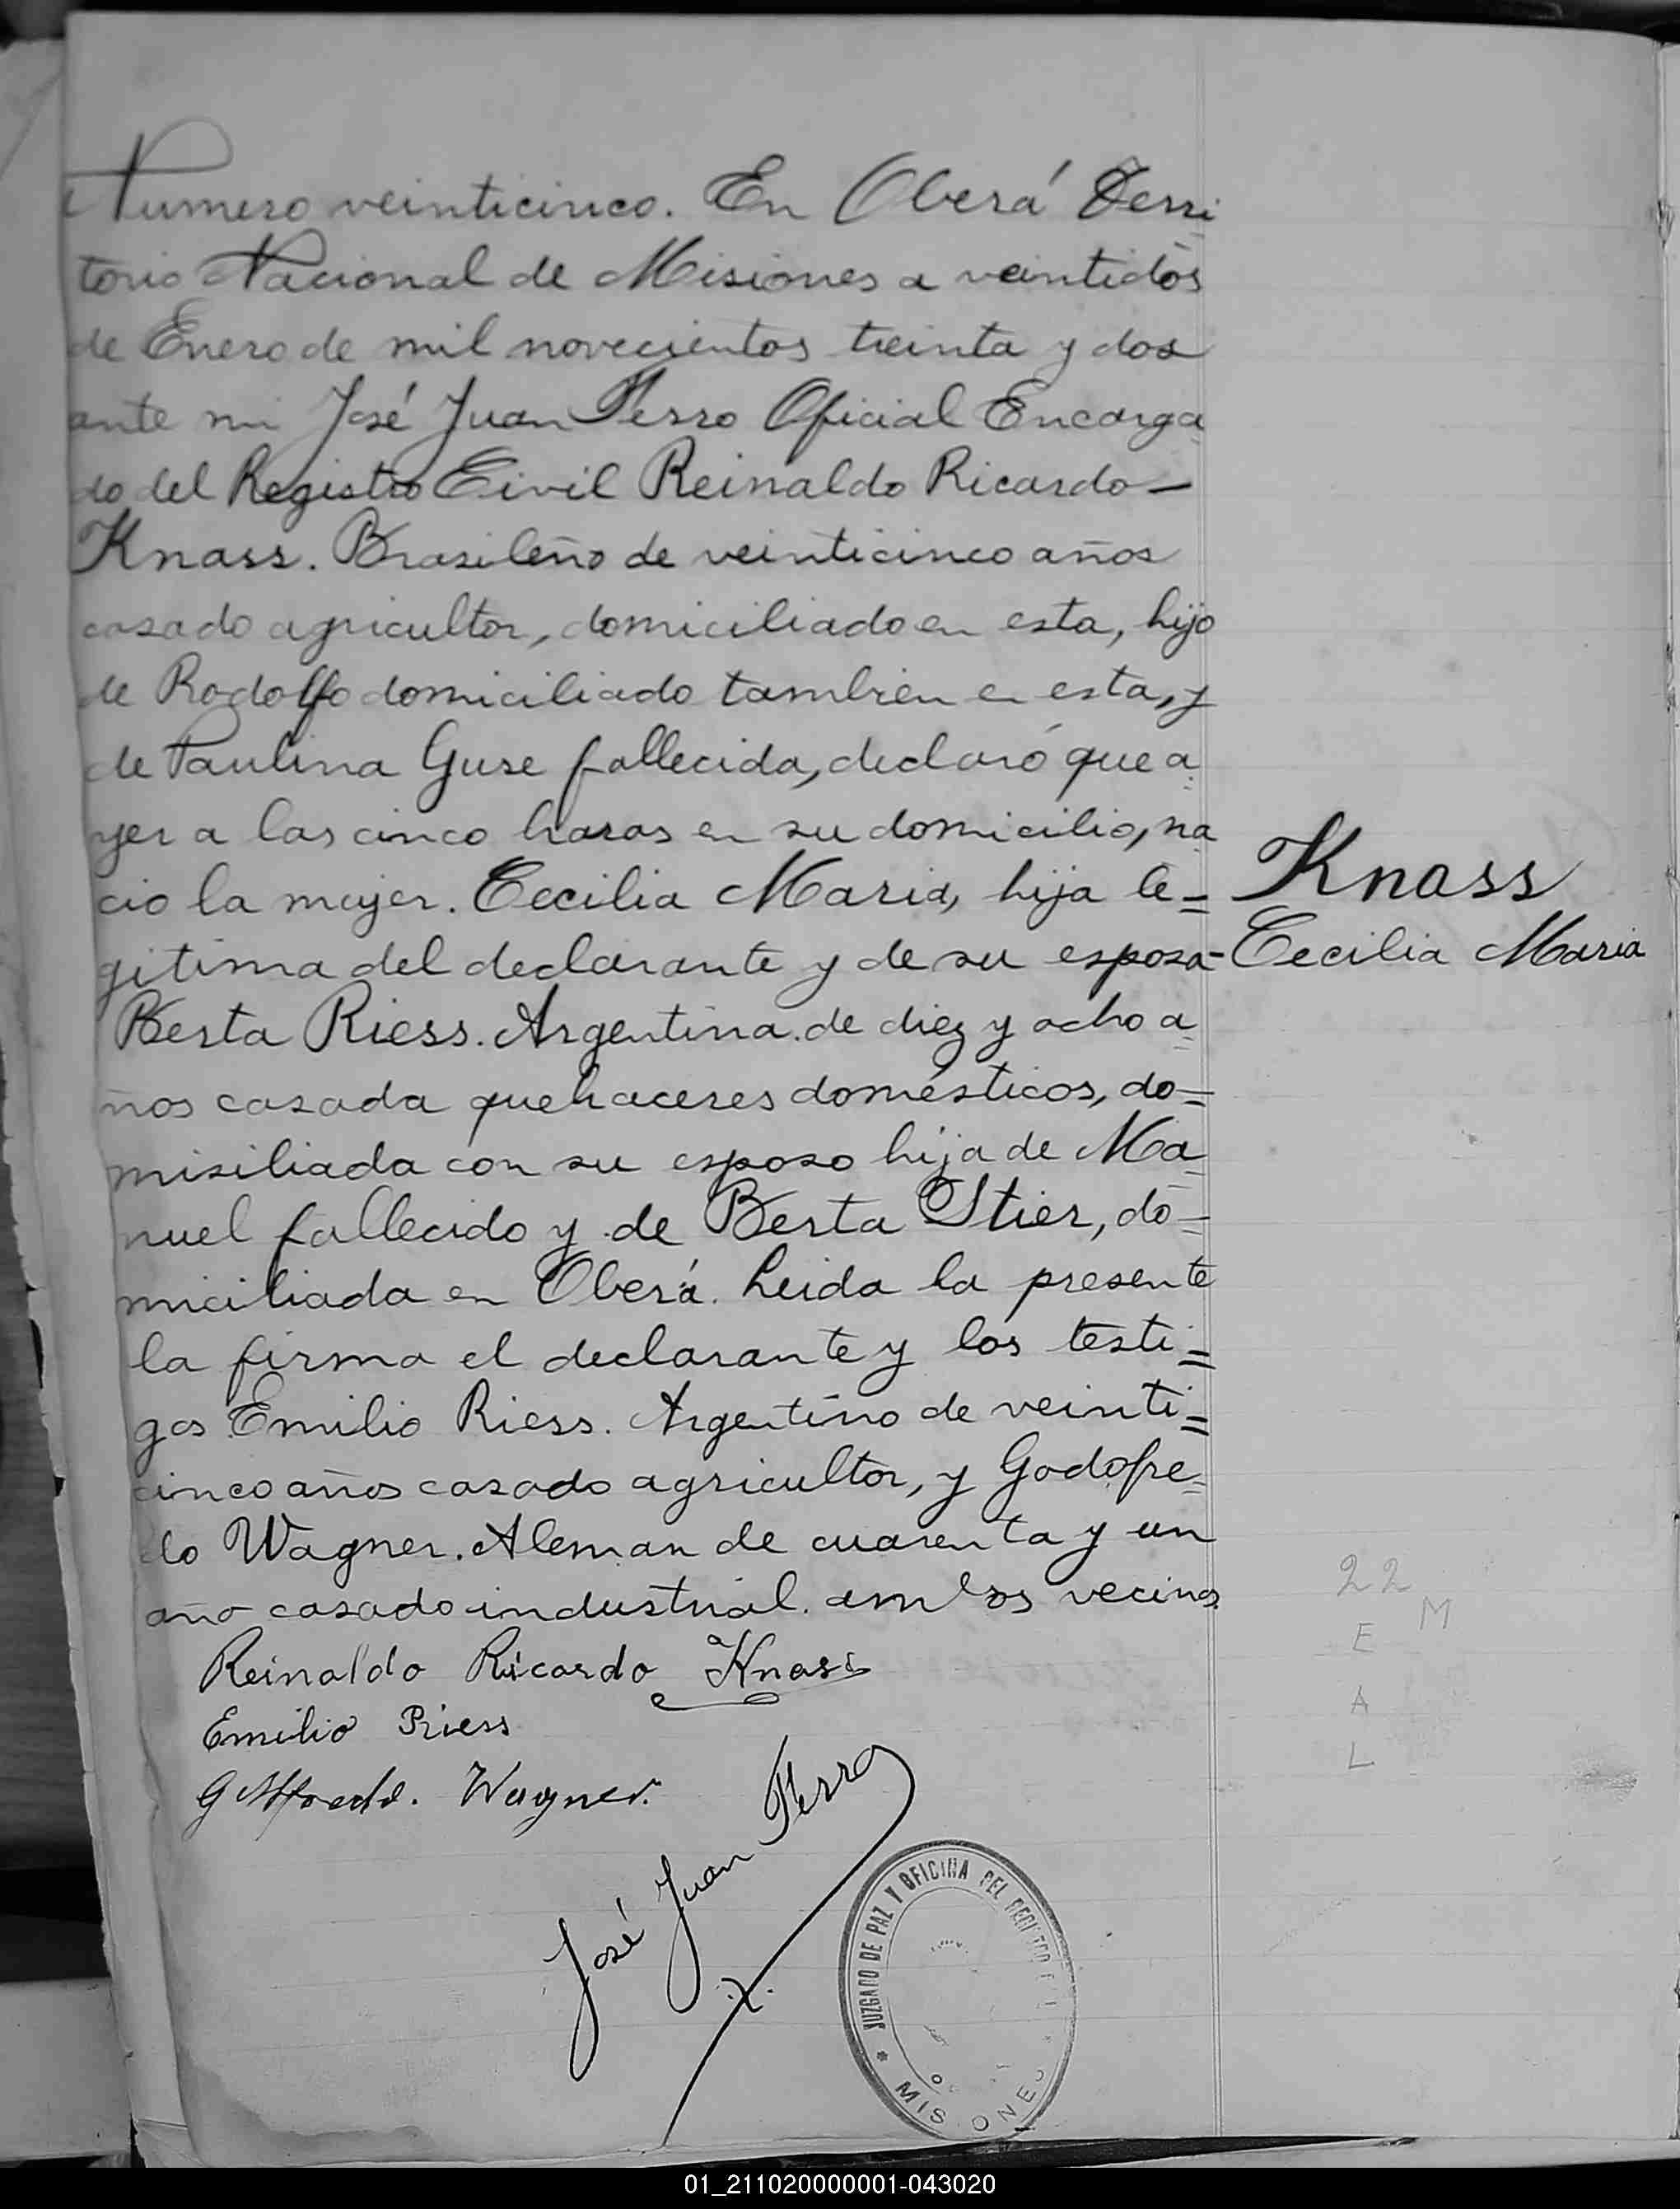 Numero veinticinco. En Oberá Terri
torio Nacional de Misiones a veintidós
de Enero de mil novecientos treinta y dos
ante mi José Juan Ferro Oficial Encarga
do del Registro Civil Reinaldo Ricardo-
Knass. Brasileño de veinticinco años
casado agricultor, domiciliado en esta, hijo
de Rodolfo domiciliado tambien en esta, y
de Paulina Guse fallecida, declaró que a
yer a las cinco horas en su domicilio, na
cio la mujer. Cecilia Maria, hija le=
Knass
gitima del declarante y de su esposa-
Cecilia Maria
Berta Riess. Argentina. de diez y ocho a
ños casada quehaceres domésticos, do=
misiliada con su esposo hija de Ma
nuel fallecido y de Berta Stier, do-
miciliada en Oberá. Leida la presente
la firma el declarante y los testi=
gos Emilio Riess. Argentino de veinti=
cinco años casado agricultor, y Godofre-
do Wagner. Aleman de cuarenta y un
año casado industrial. ambos vecinos
22
M
E
A
L
Reinaldo Ricardo Knass
Emilio Riess
Wagner.
José Juan Ferro
JUZGADO DE PAZ Y OFICINA DEL
MISIONES
01_211020000001-043020